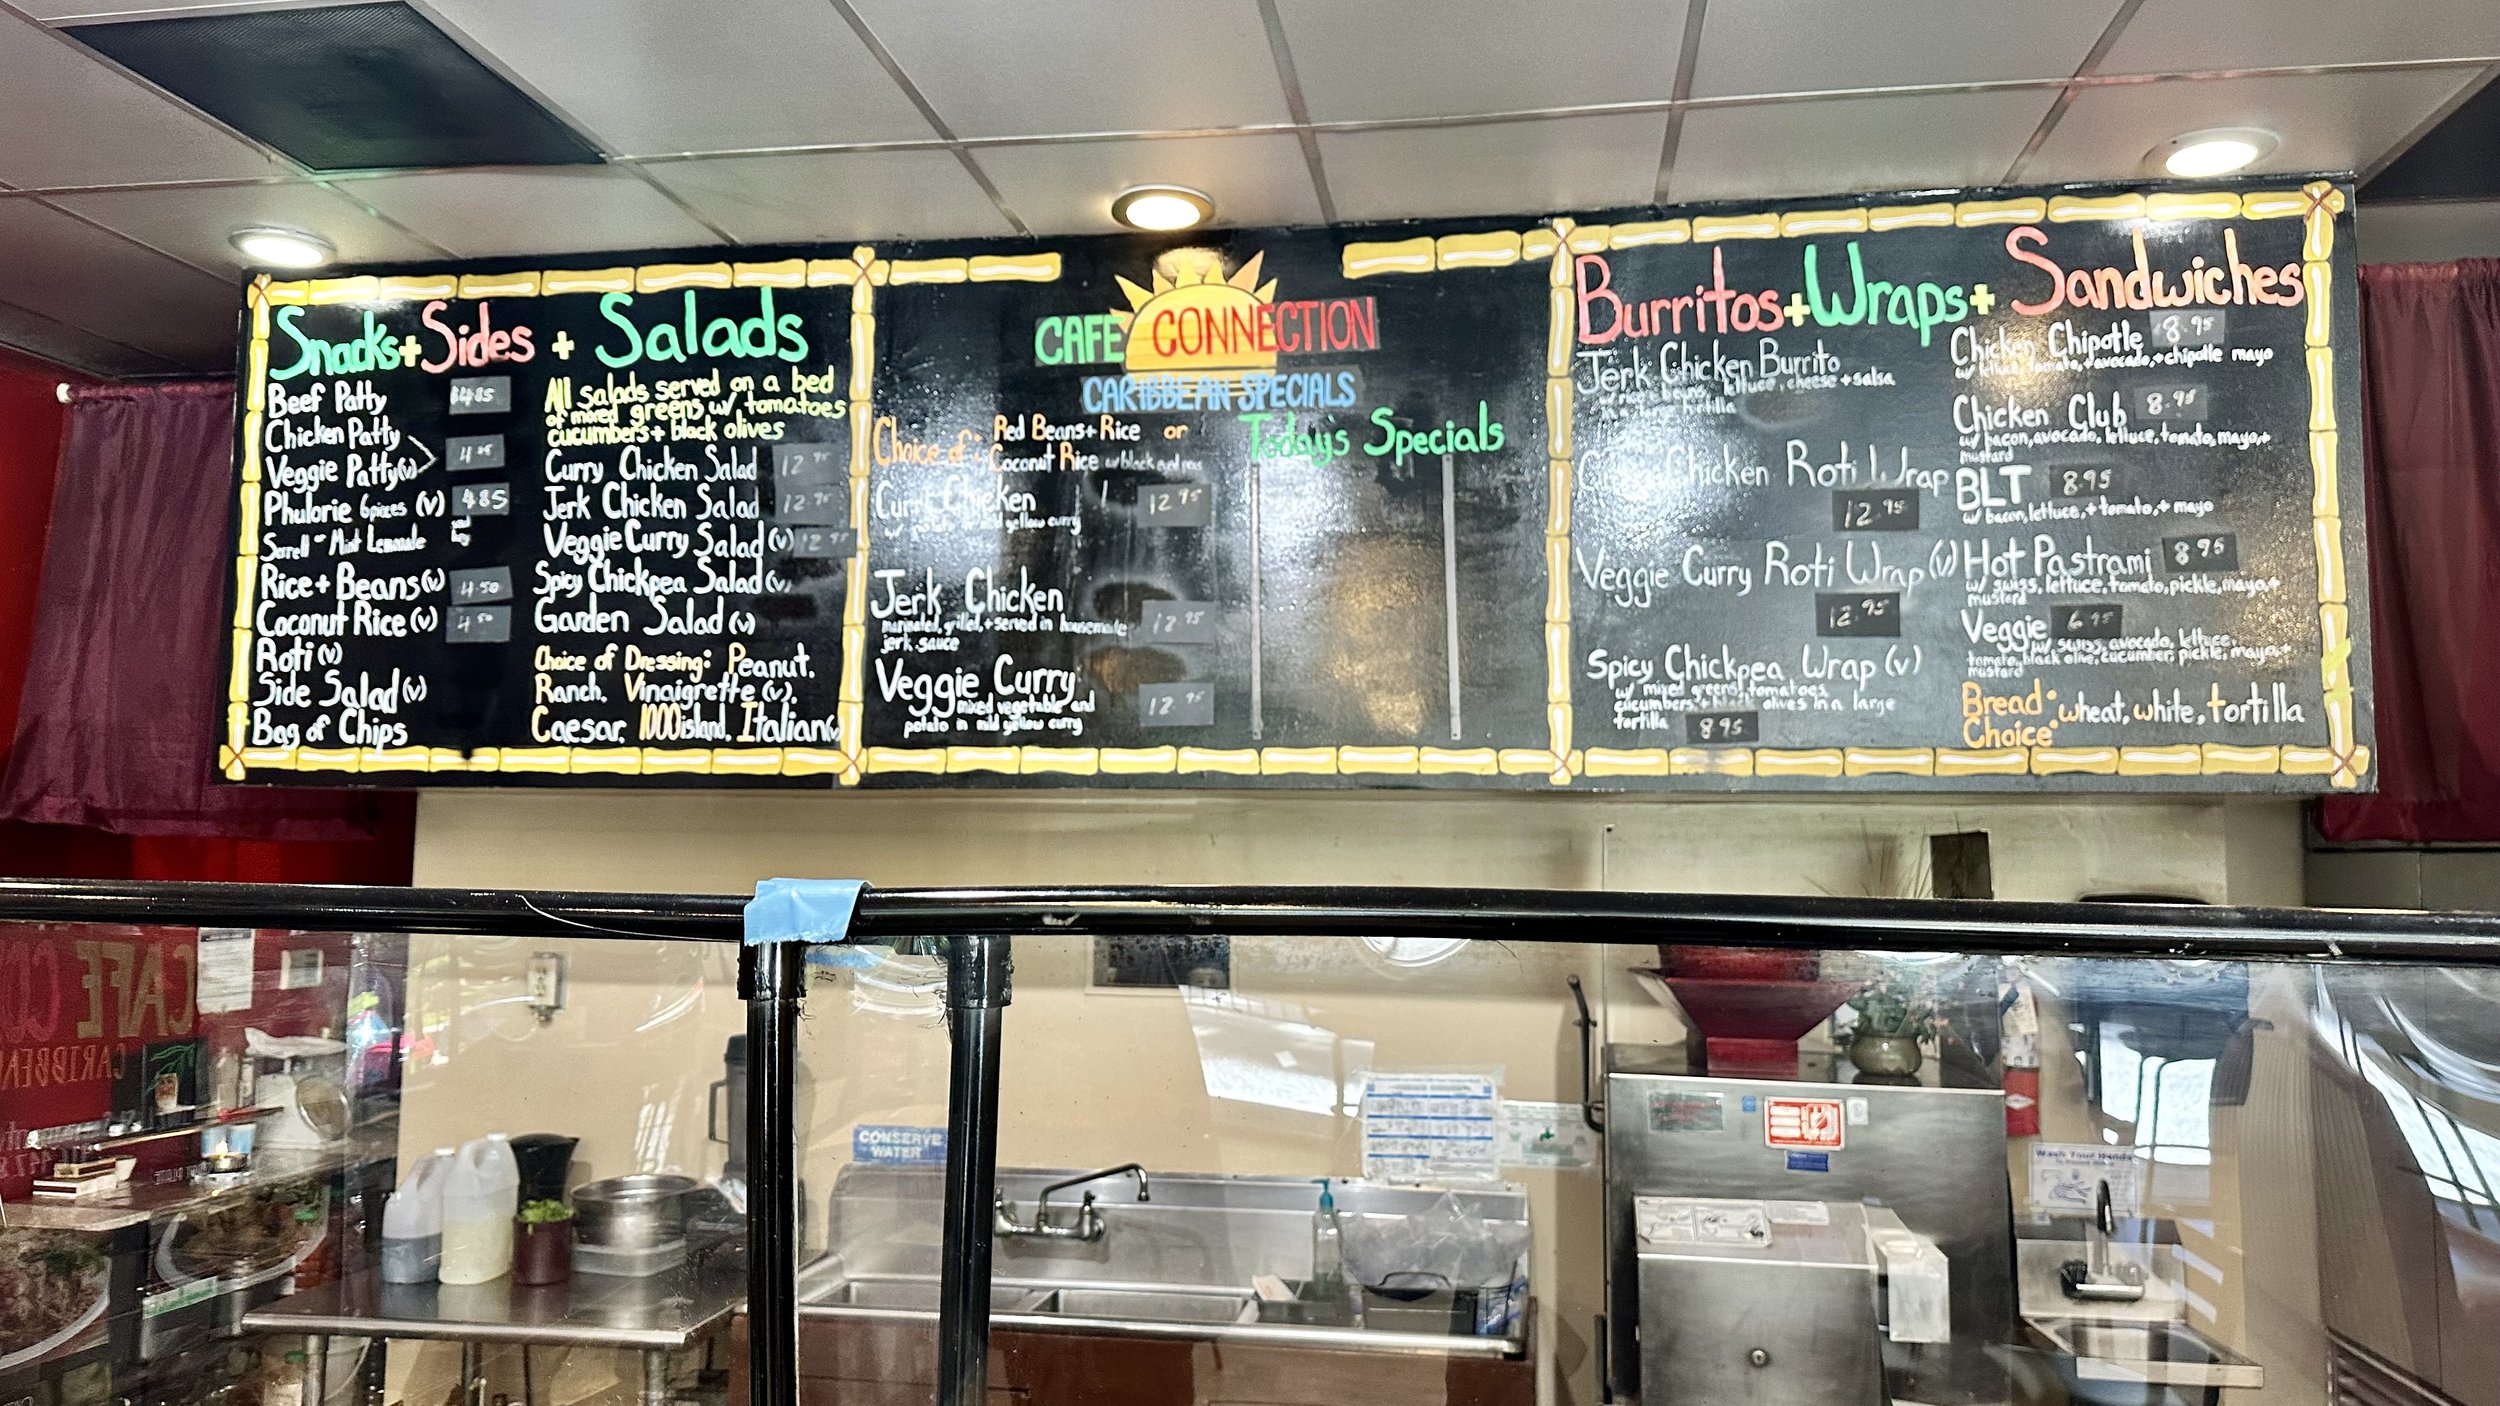 Snacks + Sides + Salads
Beef Patty $4.85
Chicken Patty
Veggie Patty (v)
Phulorie 6pieces (v) 4.85
Sorrell - Mint Lemonade
Rice + Beans (v) 4.50
Coconut Rice (v) 4.50
Roti (v)
Side Salad (v)
Bag of Chips
All salads served on a bed
of mixed greens w/ tomatoes
cucumbers + black olives
Curry Chicken Salad 12.95
Jerk Chicken Salad 12.95
Veggie Curry Salad (v) 12.95
Spicy Chickpea Salad (v)
Garden Salad (v)
Choice of Dressing: Peanut,
Ranch, Vinaigrette (v),
Caesar, 1000 island, Italian (v
CAFE CONNECTION
CARIBBEAN SPECIALS
Choice of: Red Beans + Rice or
Coconut Rice w/ black eyed peas
Today's Specials
Curry Chicken 12.95
yellow curry
Jerk Chicken 12.95
marinated, grilled, + served in housemade
jerk sauce
Veggie Curry 12.95
mixed vegetable and
potato in mild yellow curry
Burritos + Wraps + Sandwiches
Jerk Chicken Burrito
w/ rice, beans, lettuce, cheese + salsa
in a large tortilla
Curry Chicken Roti Wrap
12.95
Veggie Curry Roti Wrap (v)
12.95
Spicy Chickpea Wrap (v)
w/ mixed greens, tomatoes,
cucumbers + black olives in a large
tortilla 8.95
Chicken Chipotle 8.95
w/ lettuce, tomato, + avocado, + chipotle mayo
Chicken Club 8.95
w/ bacon, avocado, lettuce, tomato, mayo, +
mustard
BLT 8.95
w/ bacon, lettuce, + tomato, + mayo
Hot Pastrami 8.95
w/ swiss, lettuce, tomato, pickle, mayo, +
mustard
Veggie 6.95
w/ swiss, avocado, lettuce,
tomato, black olive, cucumber, pickle, mayo, +
mustard
Bread Choice: wheat, white, tortilla
CAFE CO
CARIBBEA
CONSERVE
WATER
Wash Your Hands